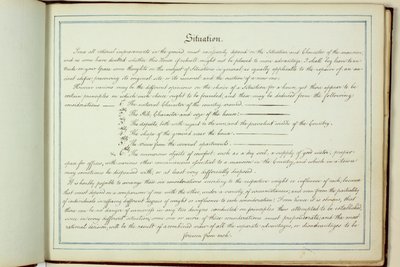 Situation.
Since all rational improvements in the ground must necessarily depend on the Situation and Character of the mansion,
and as some have doubted whether this House if rebuilt might not be placed to more advantage. I shall beg leave to in-
trude on your Grace some thoughts on the subject of Situations in general as equally applicable to the repairs of an an-
cient edifice preserving its original site or its removal and the erection of a new one.
However various may be the different opinions on the choice of a Situation for a house, yet there appear to be
certain principles on which such choice ought to be founded, and these may be deduced from the following
considerations — 1st The natural Character of the country around
2d The Style, Character and size of the house
3d The aspects both with regard to the sun and the prevalent winds of the Country.
4th The shape of the ground near the house.
5th The views from the several apartments
6th The numerous objects of comfort, such as a dry soil, a supply of good water, proper
space for offices, with various other conveniences essential to a mansion in the Country, and which in a town
may sometimes be dispensed with, or at least very differently disposed.
It is hardly possible to arrange these six considerations according to the respective weight or influence of each, because
that must depend on a comparison of one with the other, under a variety of circumstances, and even from the partiality
of individuals in affixing different degrees of weight or influence to each consideration. From hence it is obvious, that
there can be no danger of sameness in any two designs conducted on principles thus attempted to be established,
since in every different situation, some one or more of these considerations must preponderate, and the most
rational decision, will be the result of a combined view of all the separate advantages, or disadvantages to be
foreseen from each.